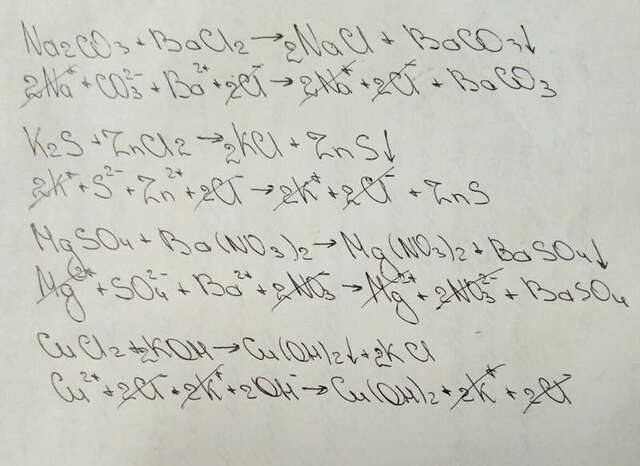 Na₂CO₃ + BaCl₂ → 2NaCl + BaCO₃↓
2Na⁺ + CO₃²⁻ + Ba²⁺ + 2Cl⁻ → 2Na⁺ + 2Cl⁻ + BaCO₃
K₂S + ZnCl₂ → 2KCl + ZnS↓
2K⁺ + S²⁻ + Zn²⁺ + 2Cl⁻ → 2K⁺ + 2Cl⁻ + ZnS
MgSO₄ + Ba(NO₃)₂ → Mg(NO₃)₂ + BaSO₄↓
Mg²⁺ + SO₄²⁻ + Ba²⁺ + 2NO₃⁻ → Mg²⁺ + 2NO₃²⁻ + BaSO₄
CuCl₂ + 2KOH → Cu(OH)₂↓ + 2KCl
Cu²⁺ + 2Cl⁻ + 2K⁺ + 2OH⁻ → Cu(OH)₂ + 2K⁺ + 2Cl⁻